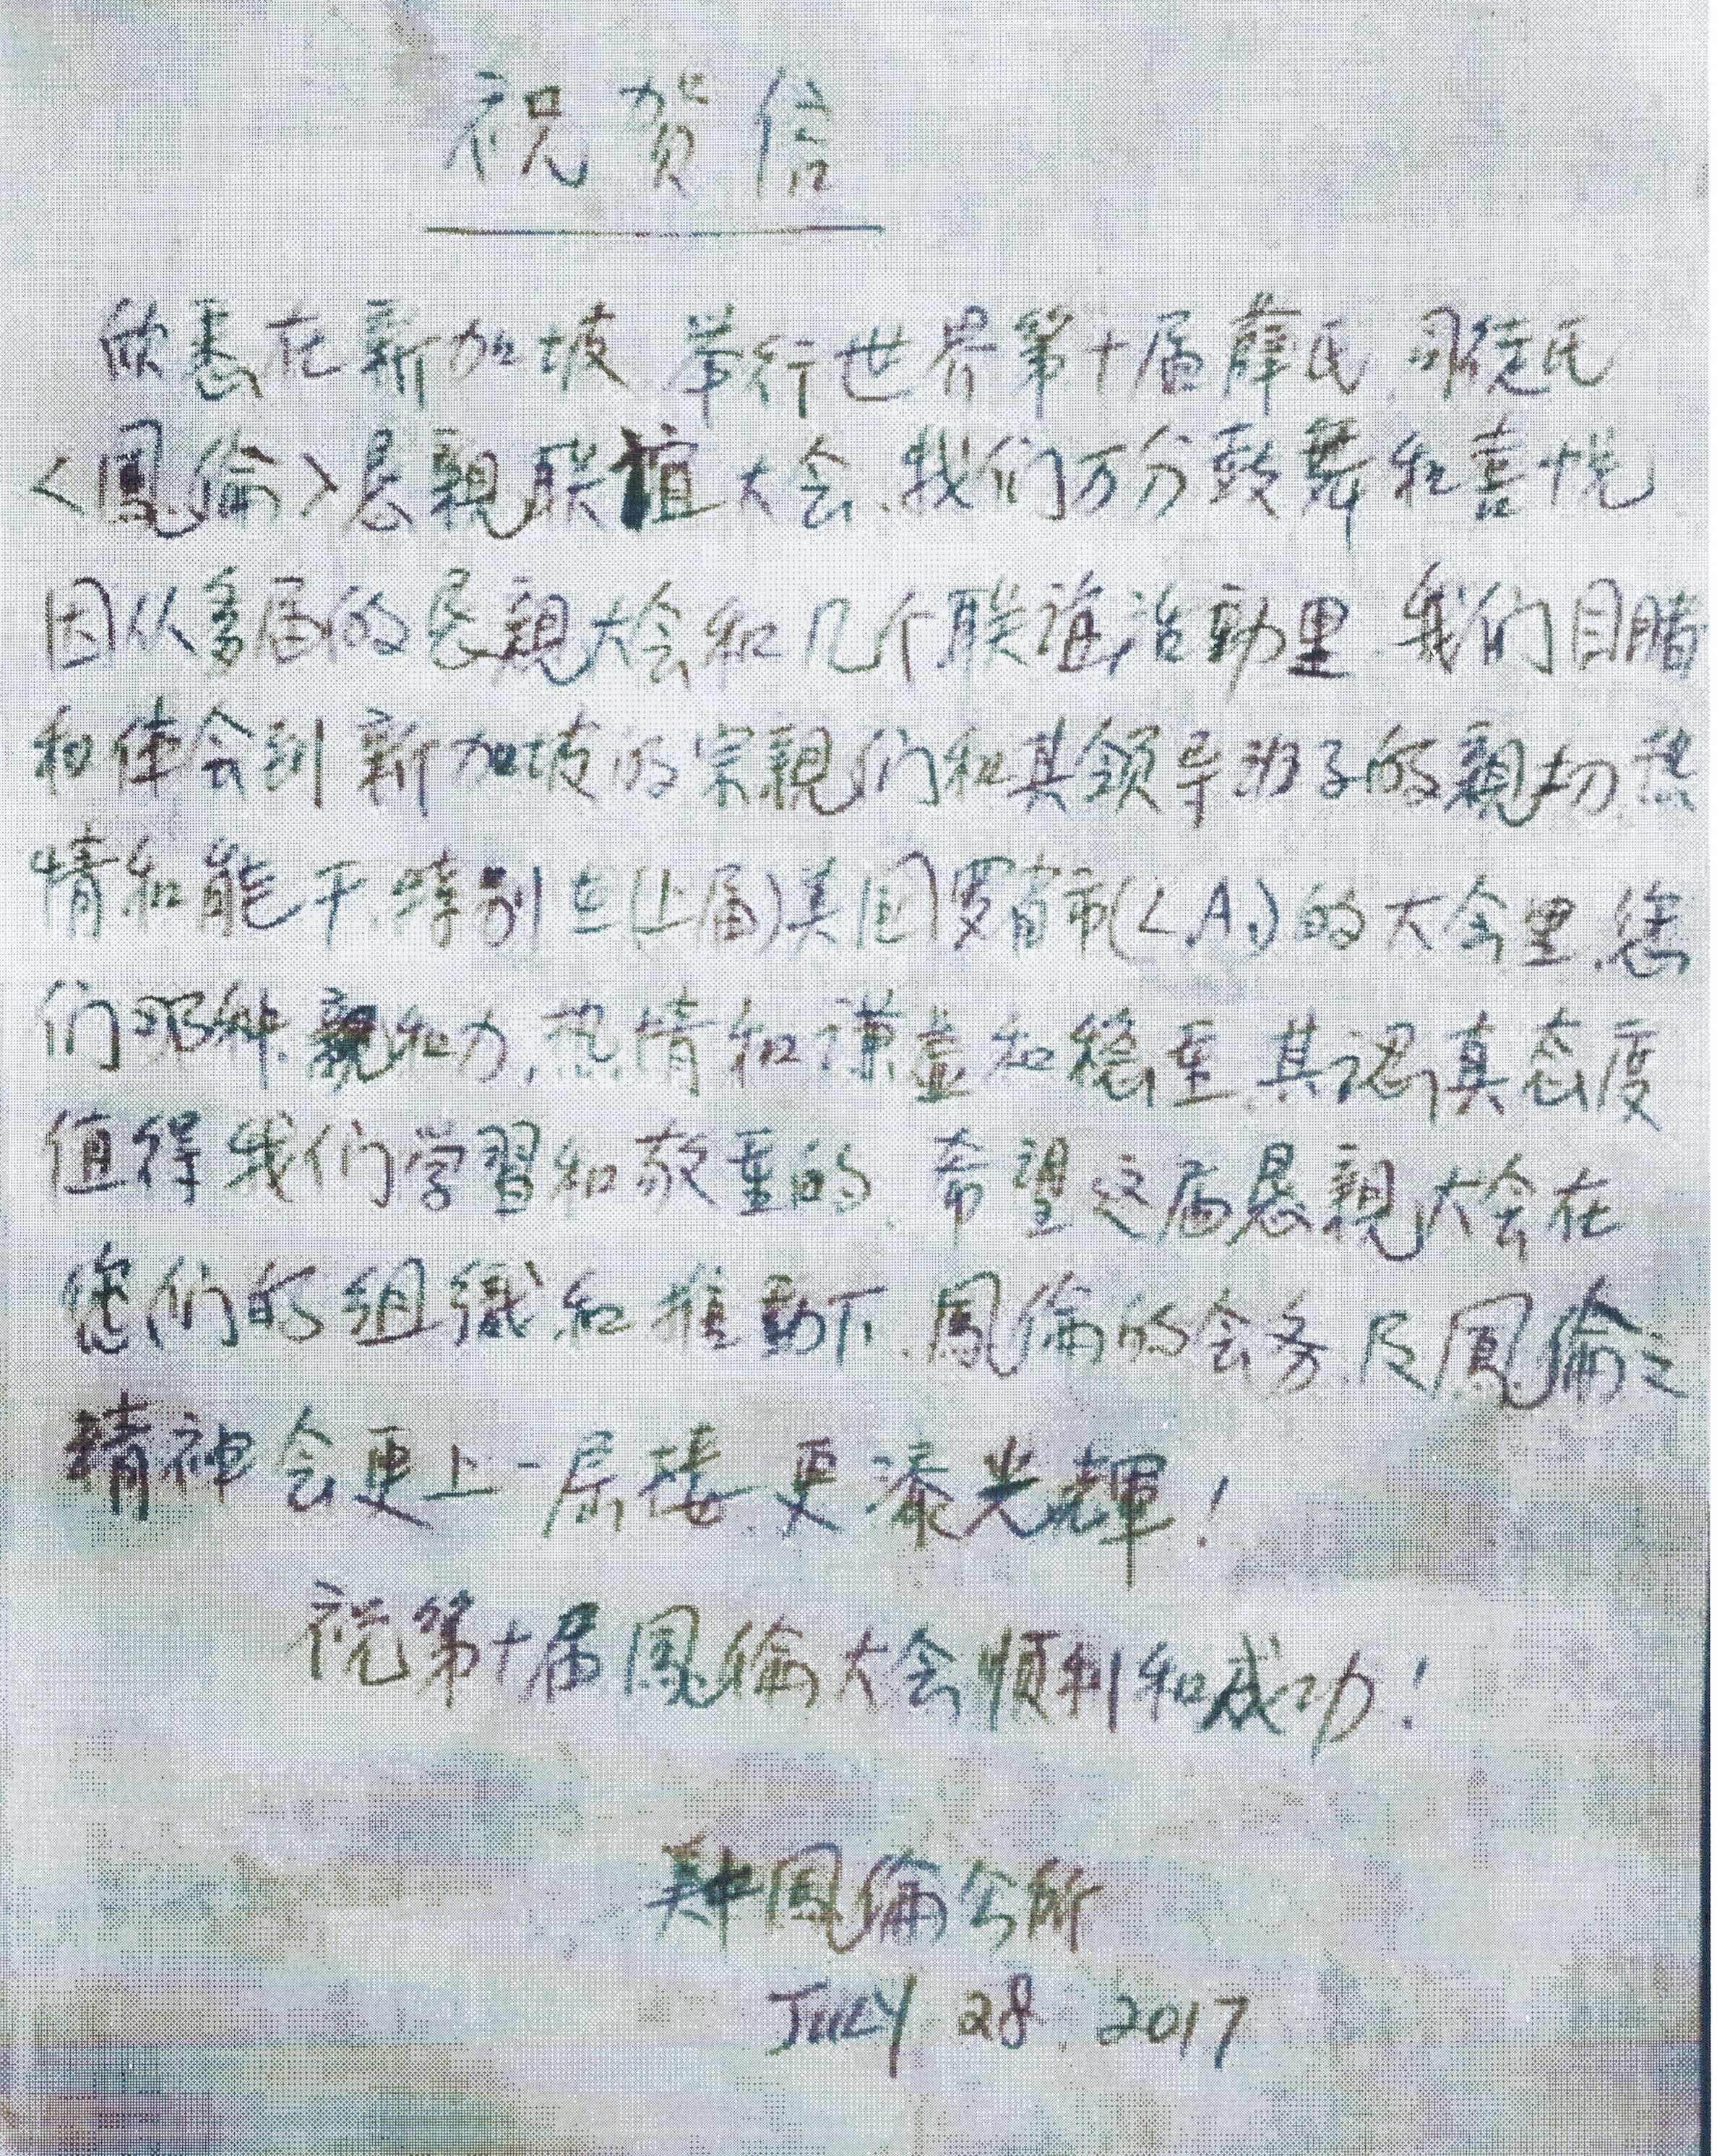 祝贺信
欣悉在新加坡.举行世界第十届薛氏.司徒氏
<鳳倫>恳親联谊大会.我们万分鼓舞和喜悦
因从多届的恳親大会和几个联誼活動里.我们目睹
和体会到新加坡的宗親们和其领导班子的親切.热
情和能干.特别在(上届)美国罗省市(L.A.)的大会里.您
们那种.親和力.热情和谦虚和穩重.其認真态度
值得我们学習和敬重的.希望这届恳親大会在
您们的组織和推動下.鳳倫的会务.及鳳倫之
精神会更上一层楼.更添光輝!
祝第十届鳳倫大会順利和成功!
鳳倫公所
JULY 28. 2017